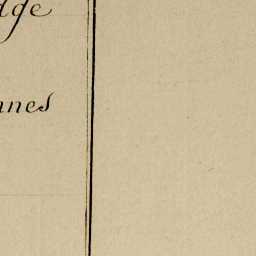 dge
nnes